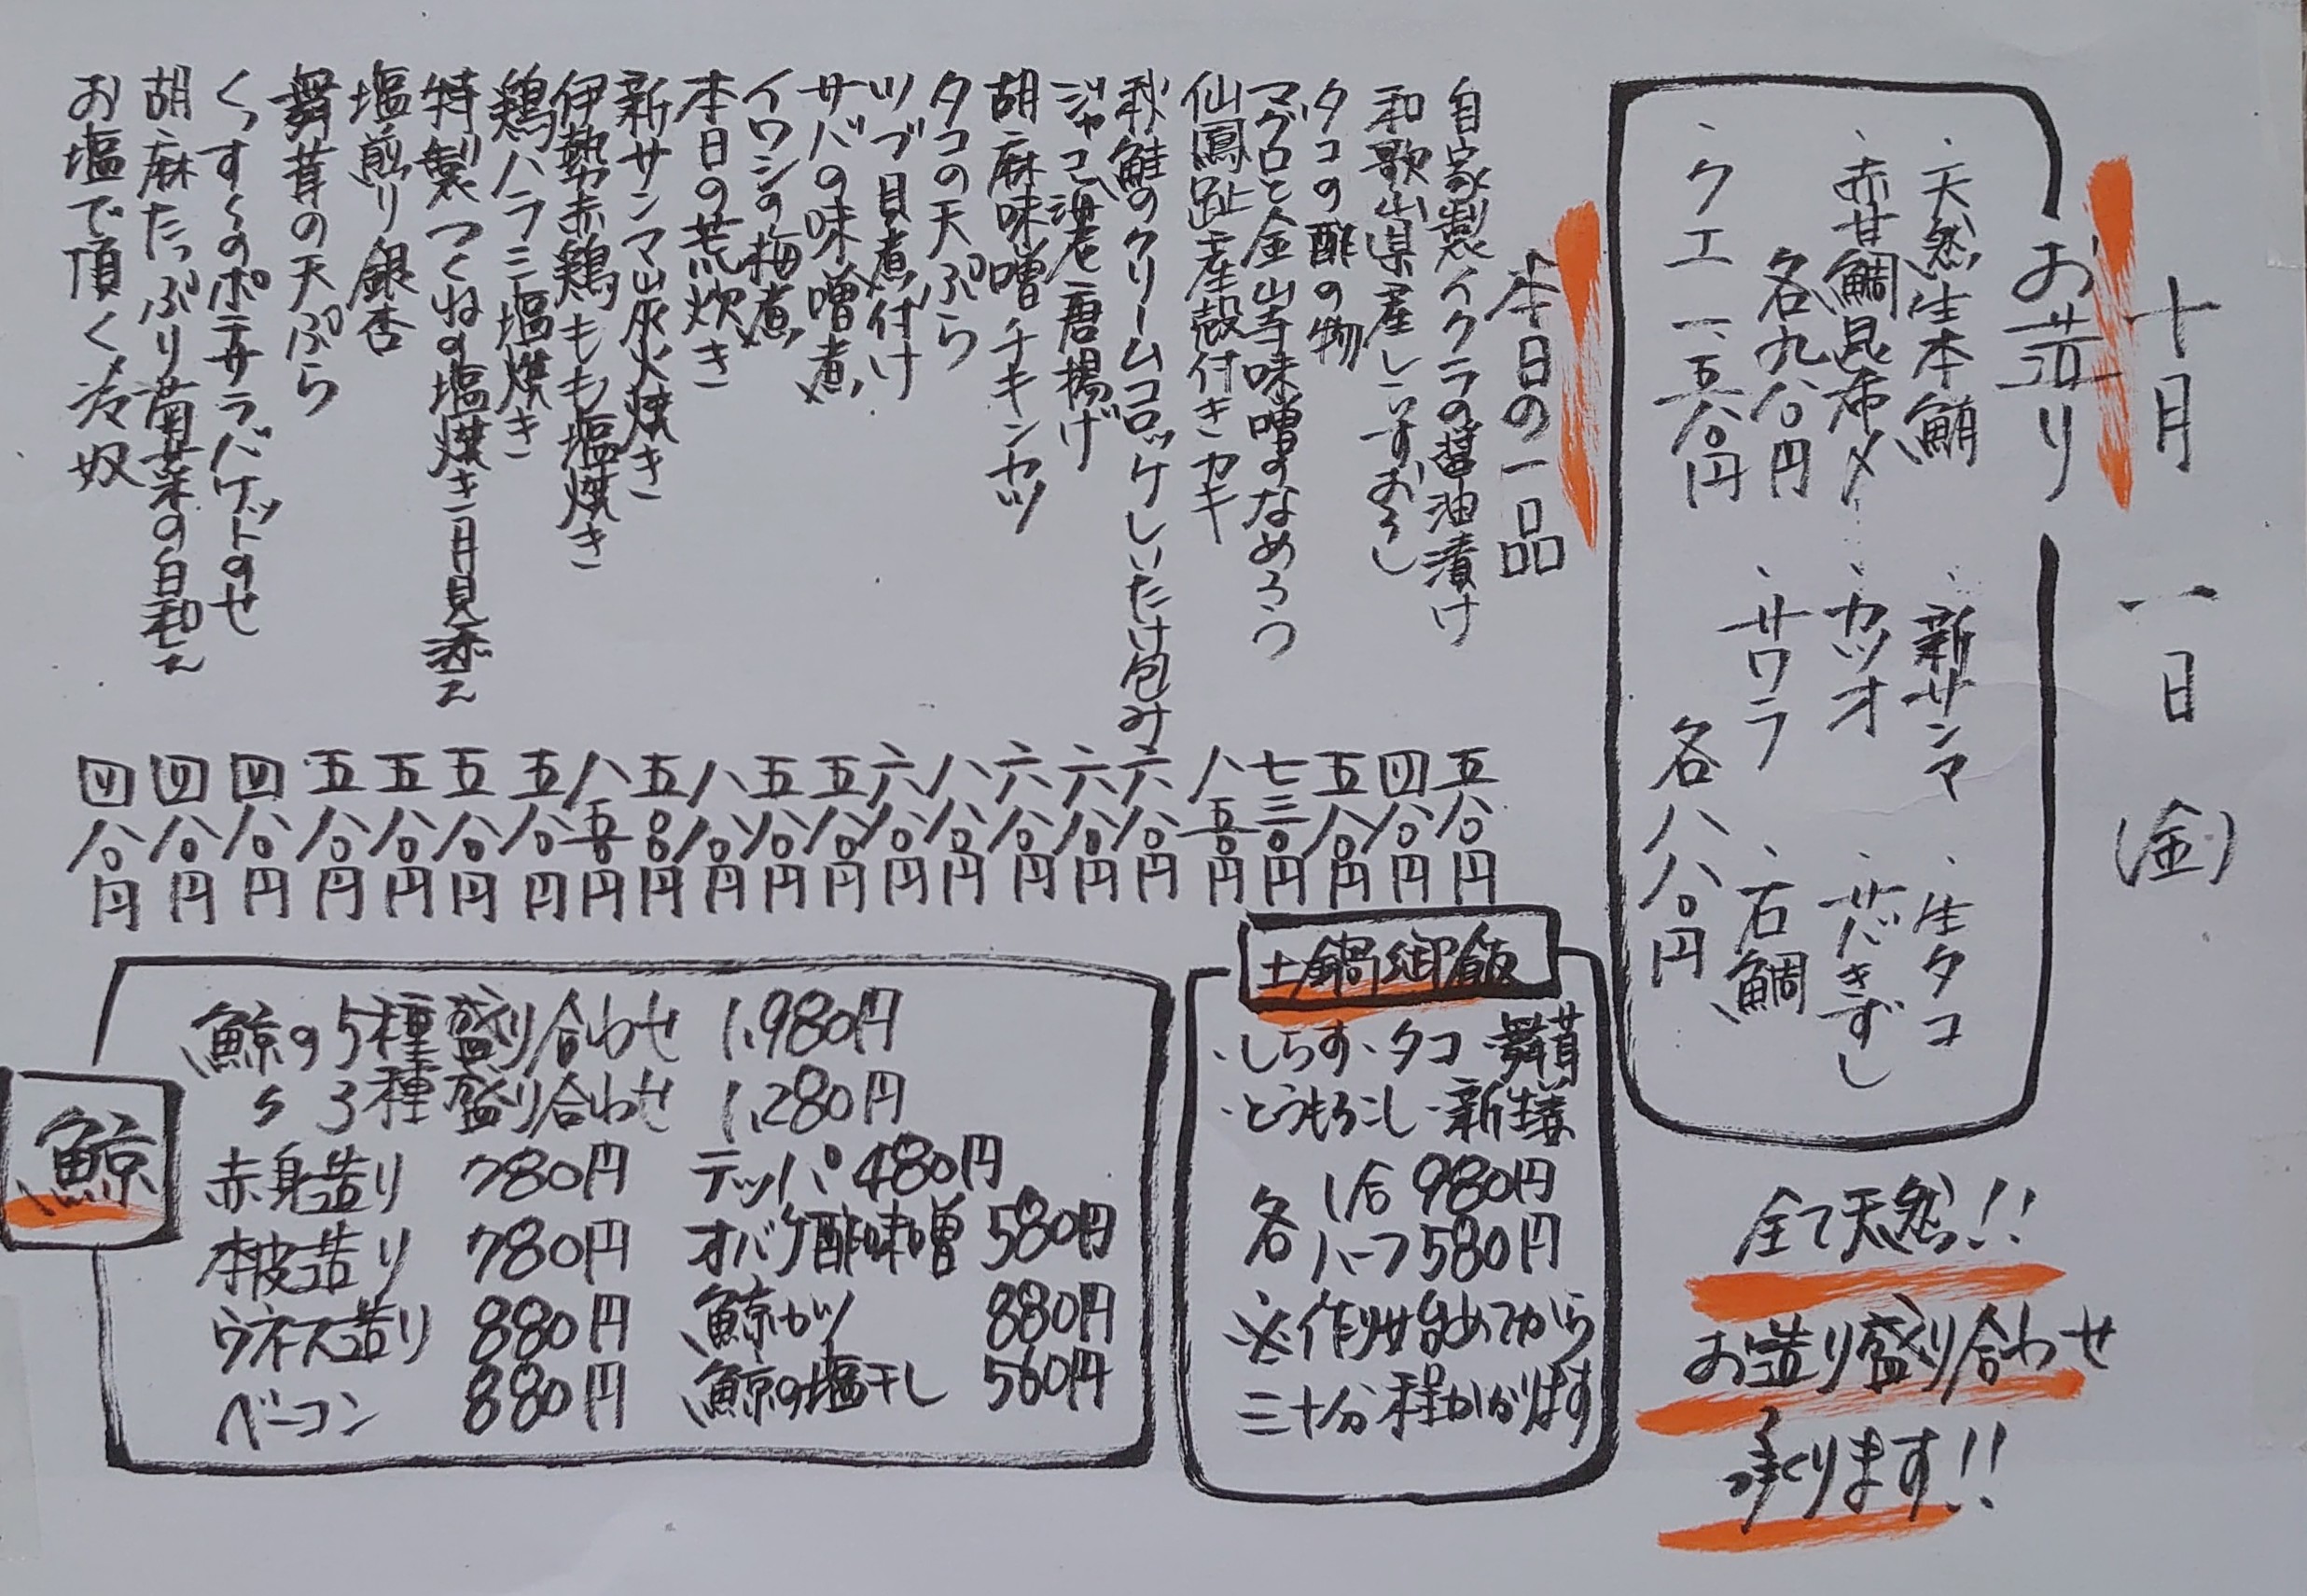 十月 一日 (金)
お造り
・天然生本鮪 ・新サンマ ・生タコ
・赤甘鯛昆布〆 ・カツオ ・サバきずし
各九八〇円 ・サワラ ・石鯛
・クエ 一、五八〇円 各八八〇円
全て天然!!
お造り盛り合わせ
承ります!!
本日の一品
自家製イクラの醤油漬け 五八〇円
和歌山県産しらすおろし 四八〇円
タコの酢の物 五八〇円
マグロと金山寺味噌のなめろう 七三〇円
仙鳳趾産殻付きカキ 八五〇円
秋鮭のクリームコロッケしいたけ包み 六八〇円
ジャコ海老唐揚げ 六八〇円
胡麻味噌チキンカツ 六八〇円
タコの天ぷら 八八〇円
ツブ貝煮付け 六八〇円
サバの味噌煮 五八〇円
イワシの梅煮 五八〇円
本日の荒炊き 八八〇円
新サンマ山灰火焼き 五〇〇円
伊勢赤鶏もも塩焼き 八五〇円
鶏ハラミ塩焼き 五八〇円
特製つくねの塩焼き月見添え 五八〇円
塩煎り銀杏 五八〇円
舞茸の天ぷら 五八〇円
くっすくのポテサラバケットのせ 四八〇円
胡麻たっぷり菊菜の白和え 四八〇円
お塩で頂く冷奴 四八〇円
土鍋御飯
・しらす・タコ・舞茸
・とうもろこし・新生姜
各 1合 980円
各 ハーフ 580円
※作り始めてから
三十分程かかります
鯨
鯨の5種盛り合わせ 1,980円
〃 3種盛り合わせ 1,280円
赤身造り 780円 テッパ 480円
本皮造り 780円 オバケ酢味噌 580円
ウネス造り 880円 鯨カツ 880円
ベーコン 880円 鯨の塩干し 560円